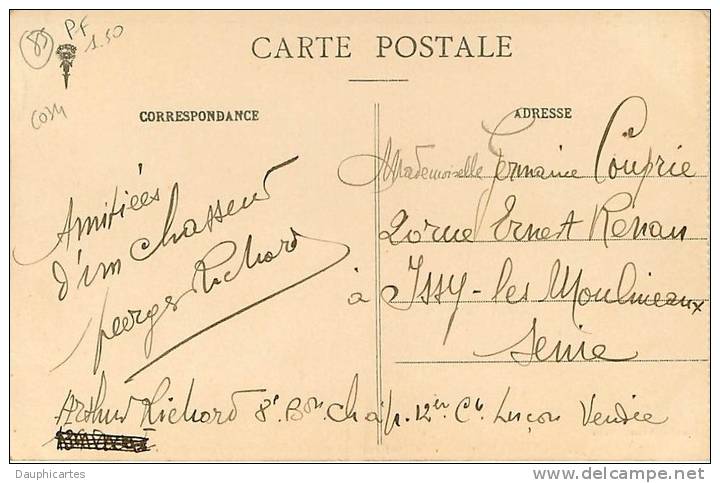 85
PF
1.50
CARTE POSTALE
CORRESPONDANCE
ADRESSE
Amitiées
d'un chasseur
Georges Richard
Mademoiselle Germaine Couprie
20 rue Ernest Renan
à Issy-les Moulineaux
Seine
Arthur Richard 8e Bon. Ch à p. 12e Cie Luçon Vendée
Dauphicartes
delcampe.net